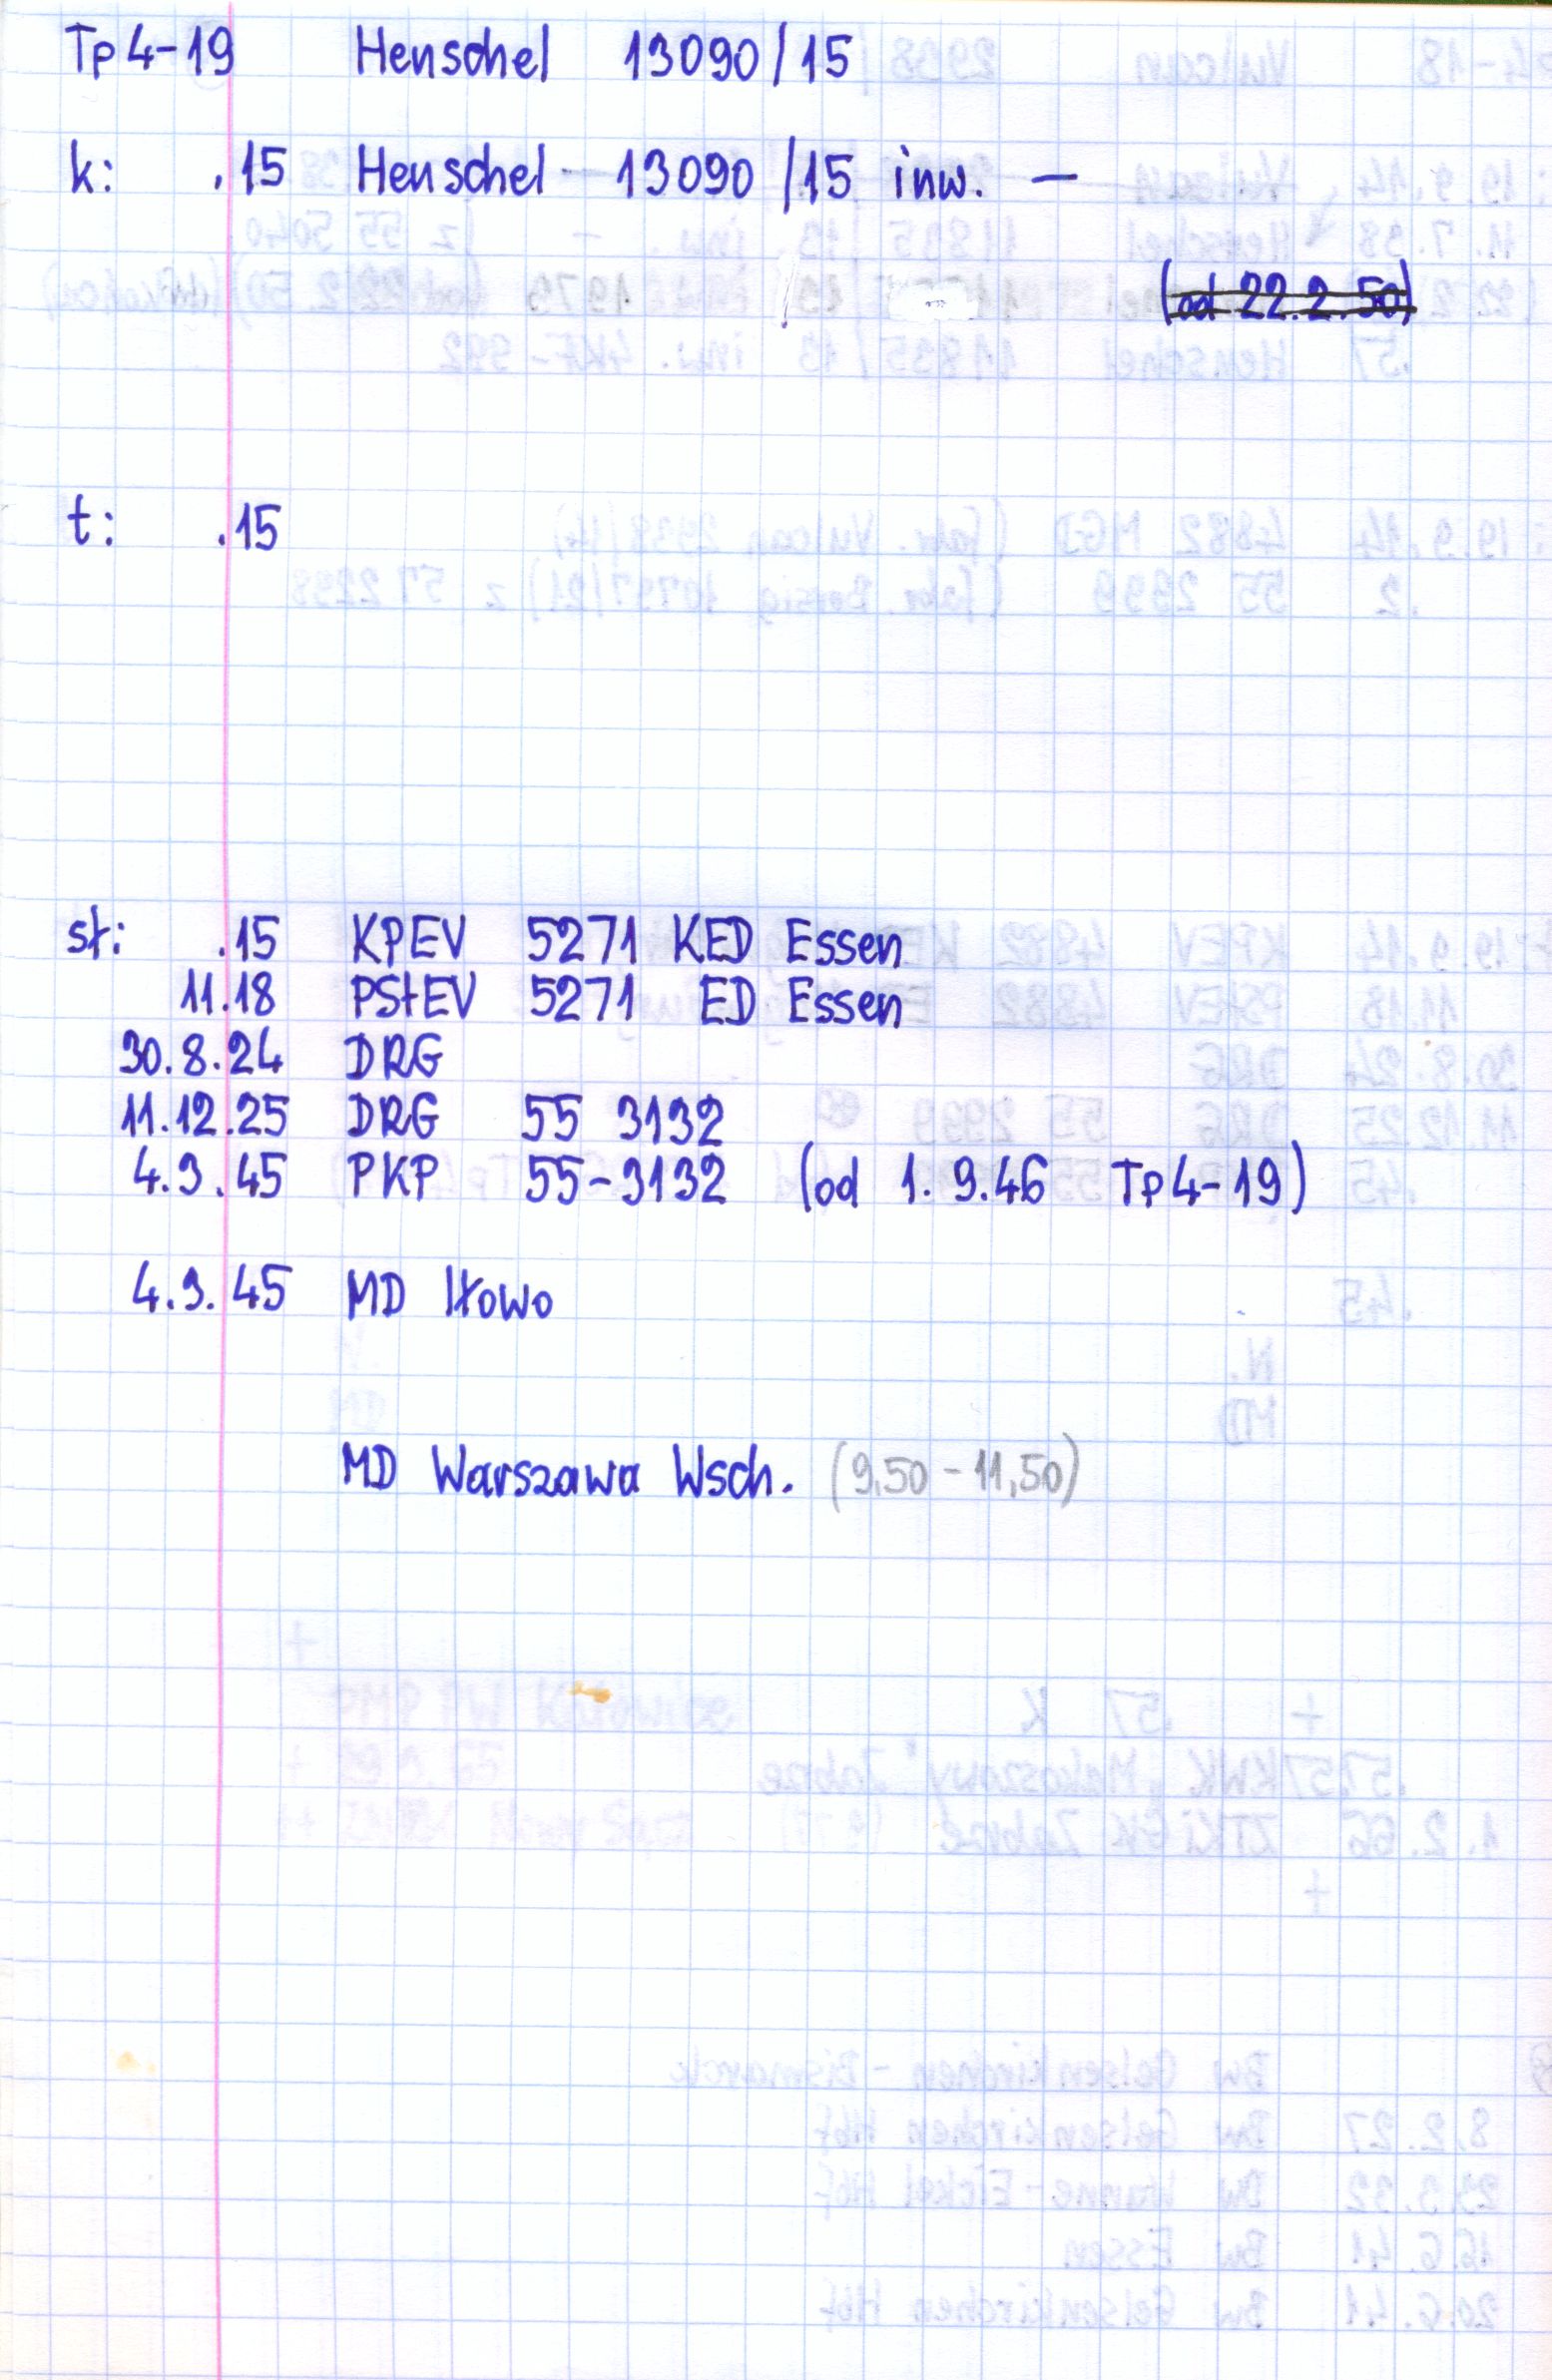 Tp4-19 Henschel 13090/15
k: .15 Henschel 13090/15 inw. —
(od 22.2.50)
t: .15
st: .15 KPEV 5271 KED Essen
11.18 PStEV 5271 ED Essen
30.8.24 DRG
11.12.25 DRG 55 3132
4.9.45 PKP 55-3132 (od 1.9.46 Tp4-19)
4.9.45 MD Iłowo
MD Warszawa Wsch. (9,50-11,50)